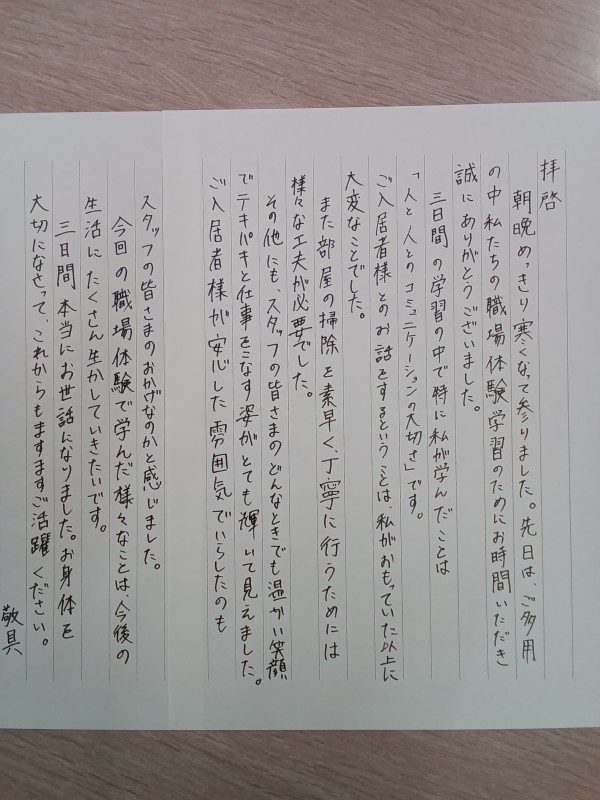 拝啓
朝晩めっきり寒くなって参りました。先日は、ご多用
の中私たちの職場体験学習のためにお時間いただき
誠にありがとうございました。
三日間の学習の中で特に私が学んだことは
「人と人とのコミュニケーションの大切さ」です。
ご入居者様とのお話をするということは、私がおもっていた以上に
大変なことでした。
また部屋の掃除を素早く、丁寧に行うためには
様々な工夫が必要でした。
その他にも、スタッフの皆さまのどんなときでも温かい笑顔
でテキパキと仕事をこなす姿がとても輝いて見えました。
ご入居者様が安心した雰囲気でいらしたのも
スタッフの皆さまのおかげなのかと感じました。
今回の職場体験で学んだ様々なことは、今後の
生活にたくさん生かしていきたいです。
三日間本当にお世話になりました。お身体を
大切になさって、これからもますますご活躍ください。
敬具